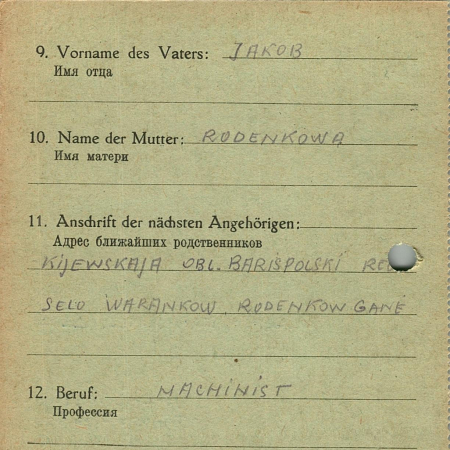 9. Vorname des Vaters: JAKOB
Имя отца
10. Name der Mutter: RODENKOWA
Имя матери
11. Anschrift der nächsten Angehörigen:
Адрес ближайших родственников
KIJEWSKAJA OBL. BARISPOLSKI
SELO WARANKOW. RODENKOW GANE
12. Beruf: MACHINIST
Профессия